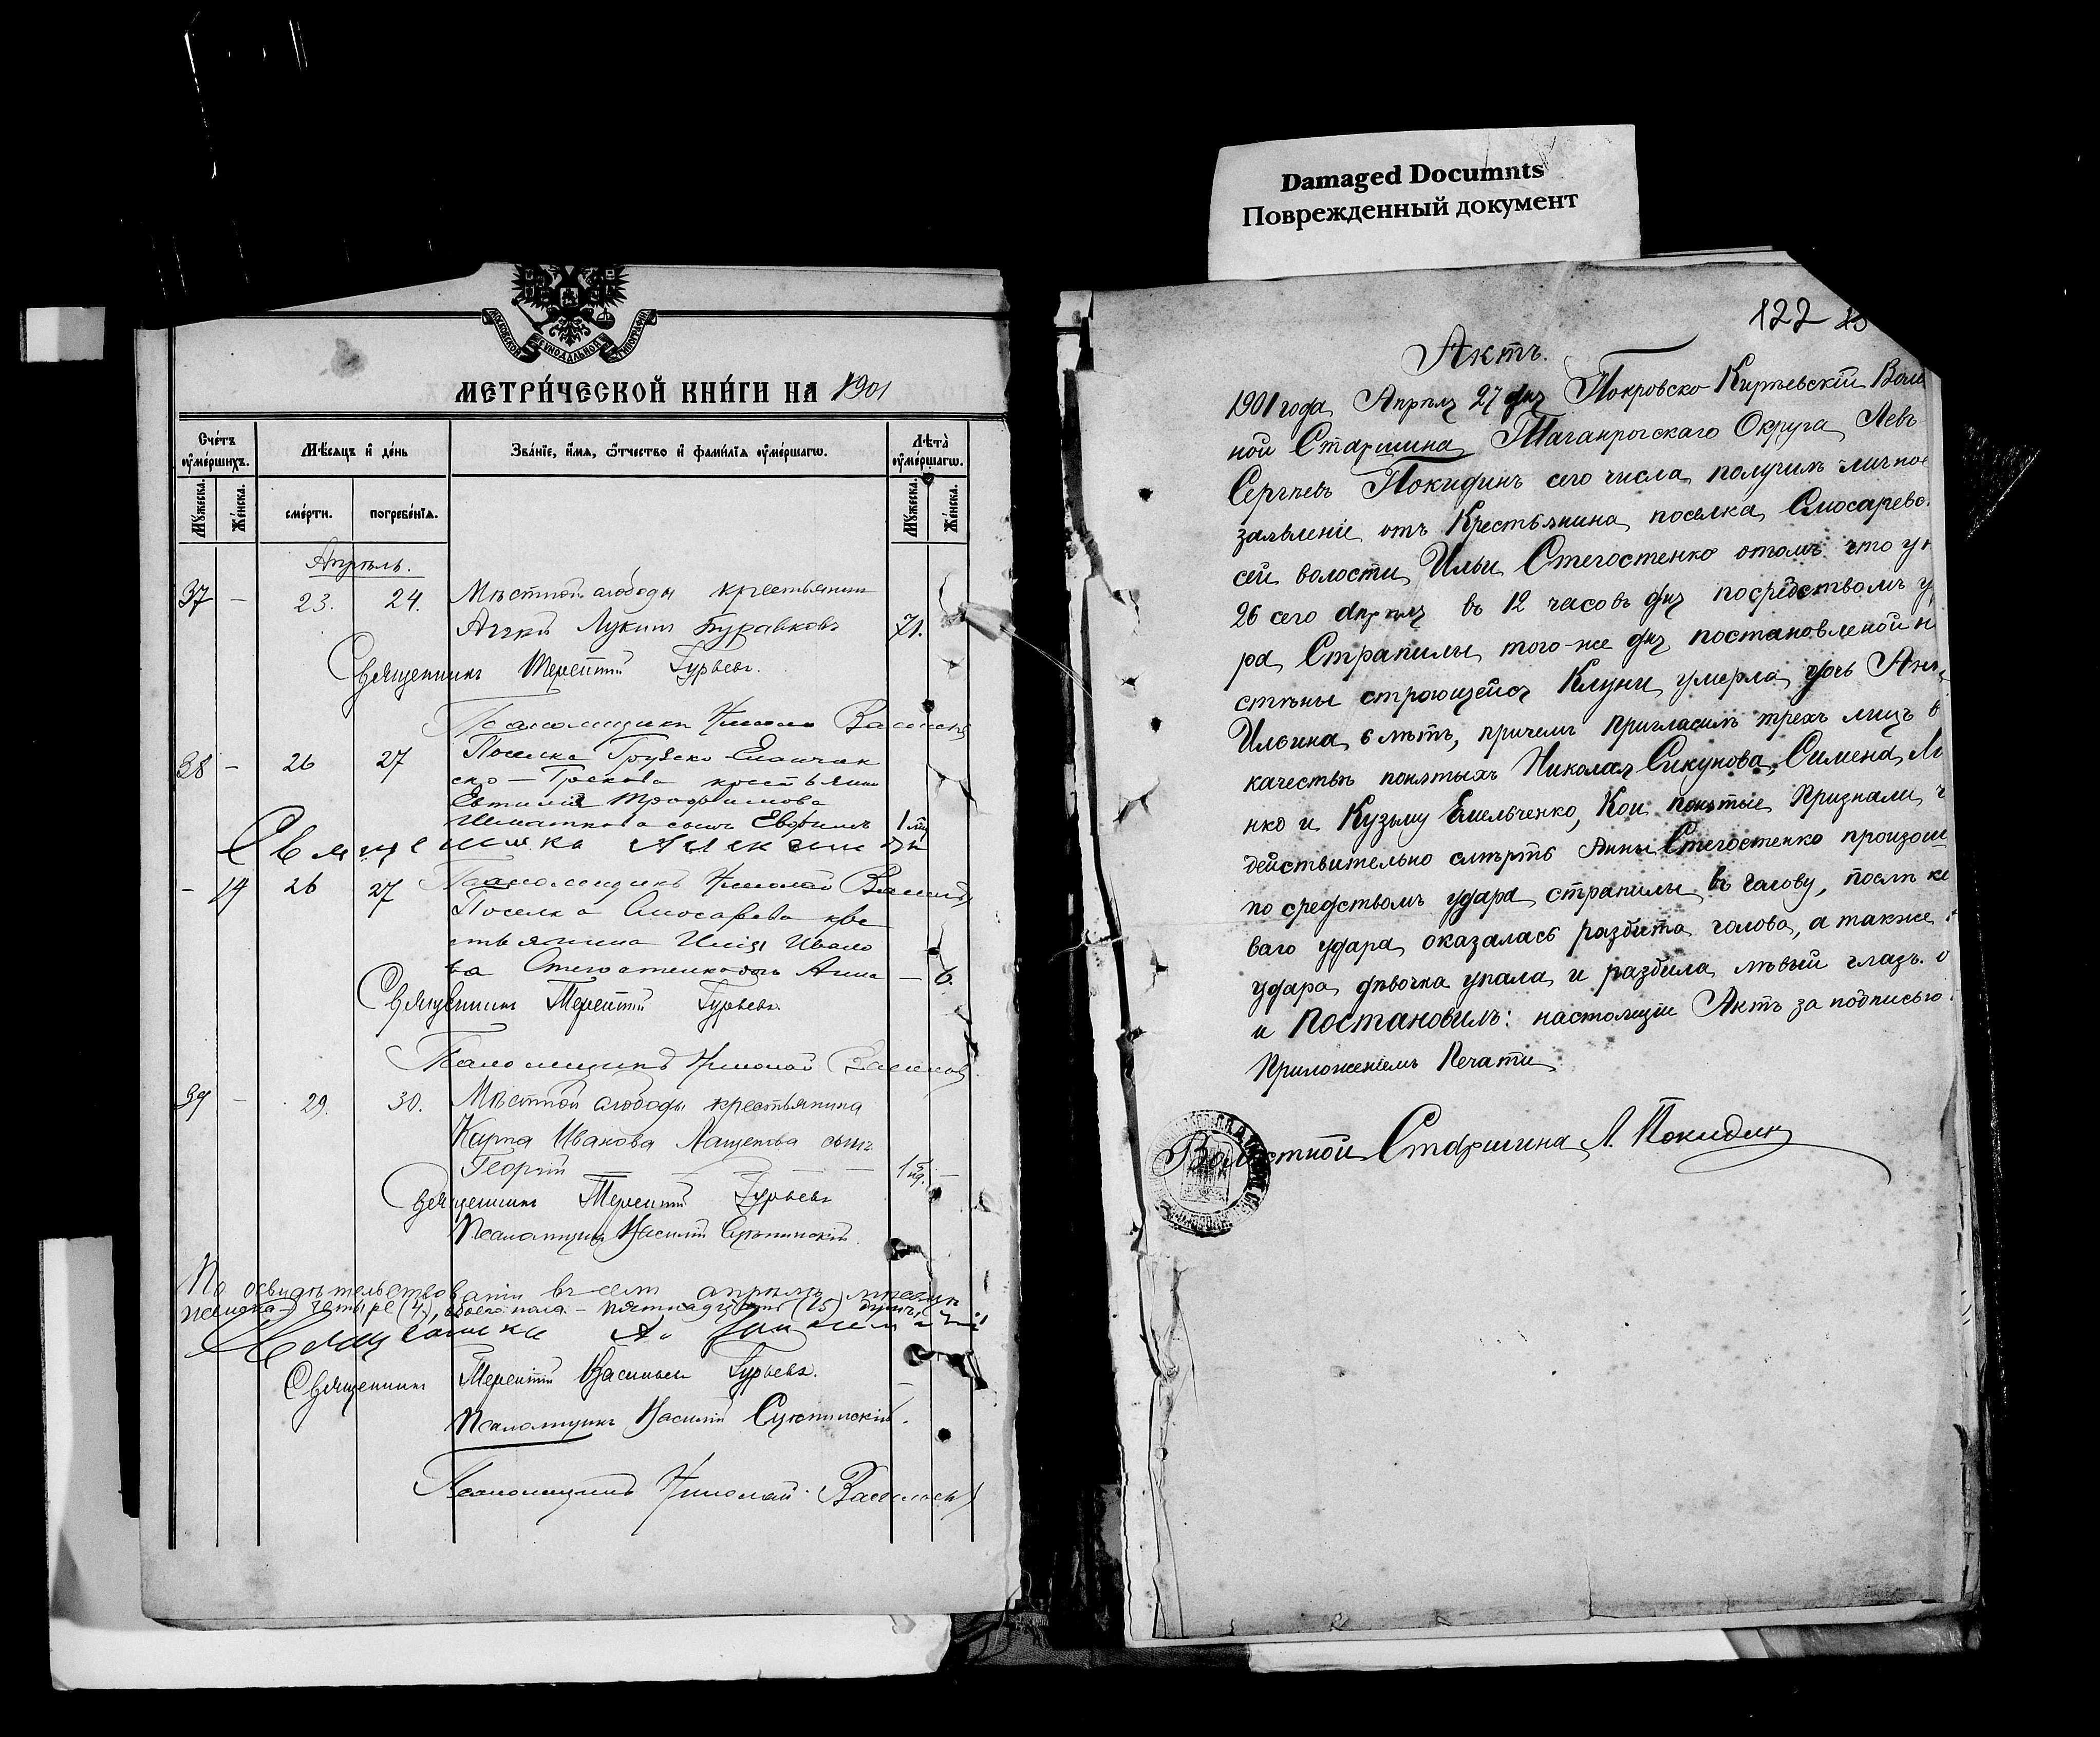 Damaged Documnts
Поврежденный документ
МОСКОВСКОЙ СѴНОДАЛЬНОЙ ТИПОГРАФІИ
МЕТРИ́ЧЕСКОЙ КНИ́ГИ НА 1901
Счетъ ᲂумершихъ.
Мѣсяцъ и день
Званіе, имя, ѿчество и фамилія ᲂумершагѡ.
Лѣта ᲂумершагѡ.
Мужеска. Женска.
смерти. погребенія.
Мужеска. Женска.
Апрѣль.
37 – 23. 24. Мѣстной слободы крестьянинъ
Лукинъ Буравковъ 71.
Священникъ Терентій Гурьевъ.
Псаломщикъ Николай Васильевъ
38 – 26 27 Поселка Грузско Еланчик
ско – крестьянина
Трофимова
сынъ 1
Священникъ
– 14 26 27 Псаломщикъ Николай Васильевъ
Поселка Слюсарева кре
стьянина Иліи Ивано
ва Стегостенко дочь Анна – 6.
Священникъ Терентій Гурьевъ.
Псаломщикъ Николай Васильевъ
39 – 29. 30. Мѣстной слободы крестьянина
Карпа Иванова Лащенова сынъ
Георгій – – – 1 –
Священникъ Терентій Гурьевъ
Псаломщикъ Василій
По освидѣтельствованіи въ семъ апрѣлѣ мѣсяцѣ
женска – четыре (4), обоего пола – пятнадцать (15) душъ.
Священникъ А.
Священникъ Терентій Васильевъ Гурьевъ.
Псаломщикъ Василій
Псаломщикъ Николай Васильевъ
122
Актъ.
1901 года Апрѣля 27 дня Покровско-Кирѣевскій Воло
ной Старшина Таганрогскаго Округа Левъ
Сергѣевъ Покидинъ сего числа получилъ личное
заявленіе отъ Крестьянина поселка Слюсарево
сей волости Ильи Стегостенко отомъ что у
26 сего Апрѣля въ 12 часовъ дня посредствомъ у
ра Страпилы того-же дня постановленой н
стѣны строющейся Клуни умерла дочь Анн
Ильина 6 лѣтъ, причемъ пригласилъ трехъ лицъ в
качествѣ понятыхъ Николая Сикунова, Симена
нко и Кузьму Емельченко, Кои понятые Признали ч
действительно смѣрть Анны Стегостенко произош
по средствомъ удара страпилы въ голову, послѣ ко
ваго удара оказалась разбита голова, а также
удара дѣвочка упала и разбила лѣвый глазъ. о
и Постановилъ: настоящіе Актъ за подписью
Приложеніемъ Печати
Волостной Старшина Л. Покидин